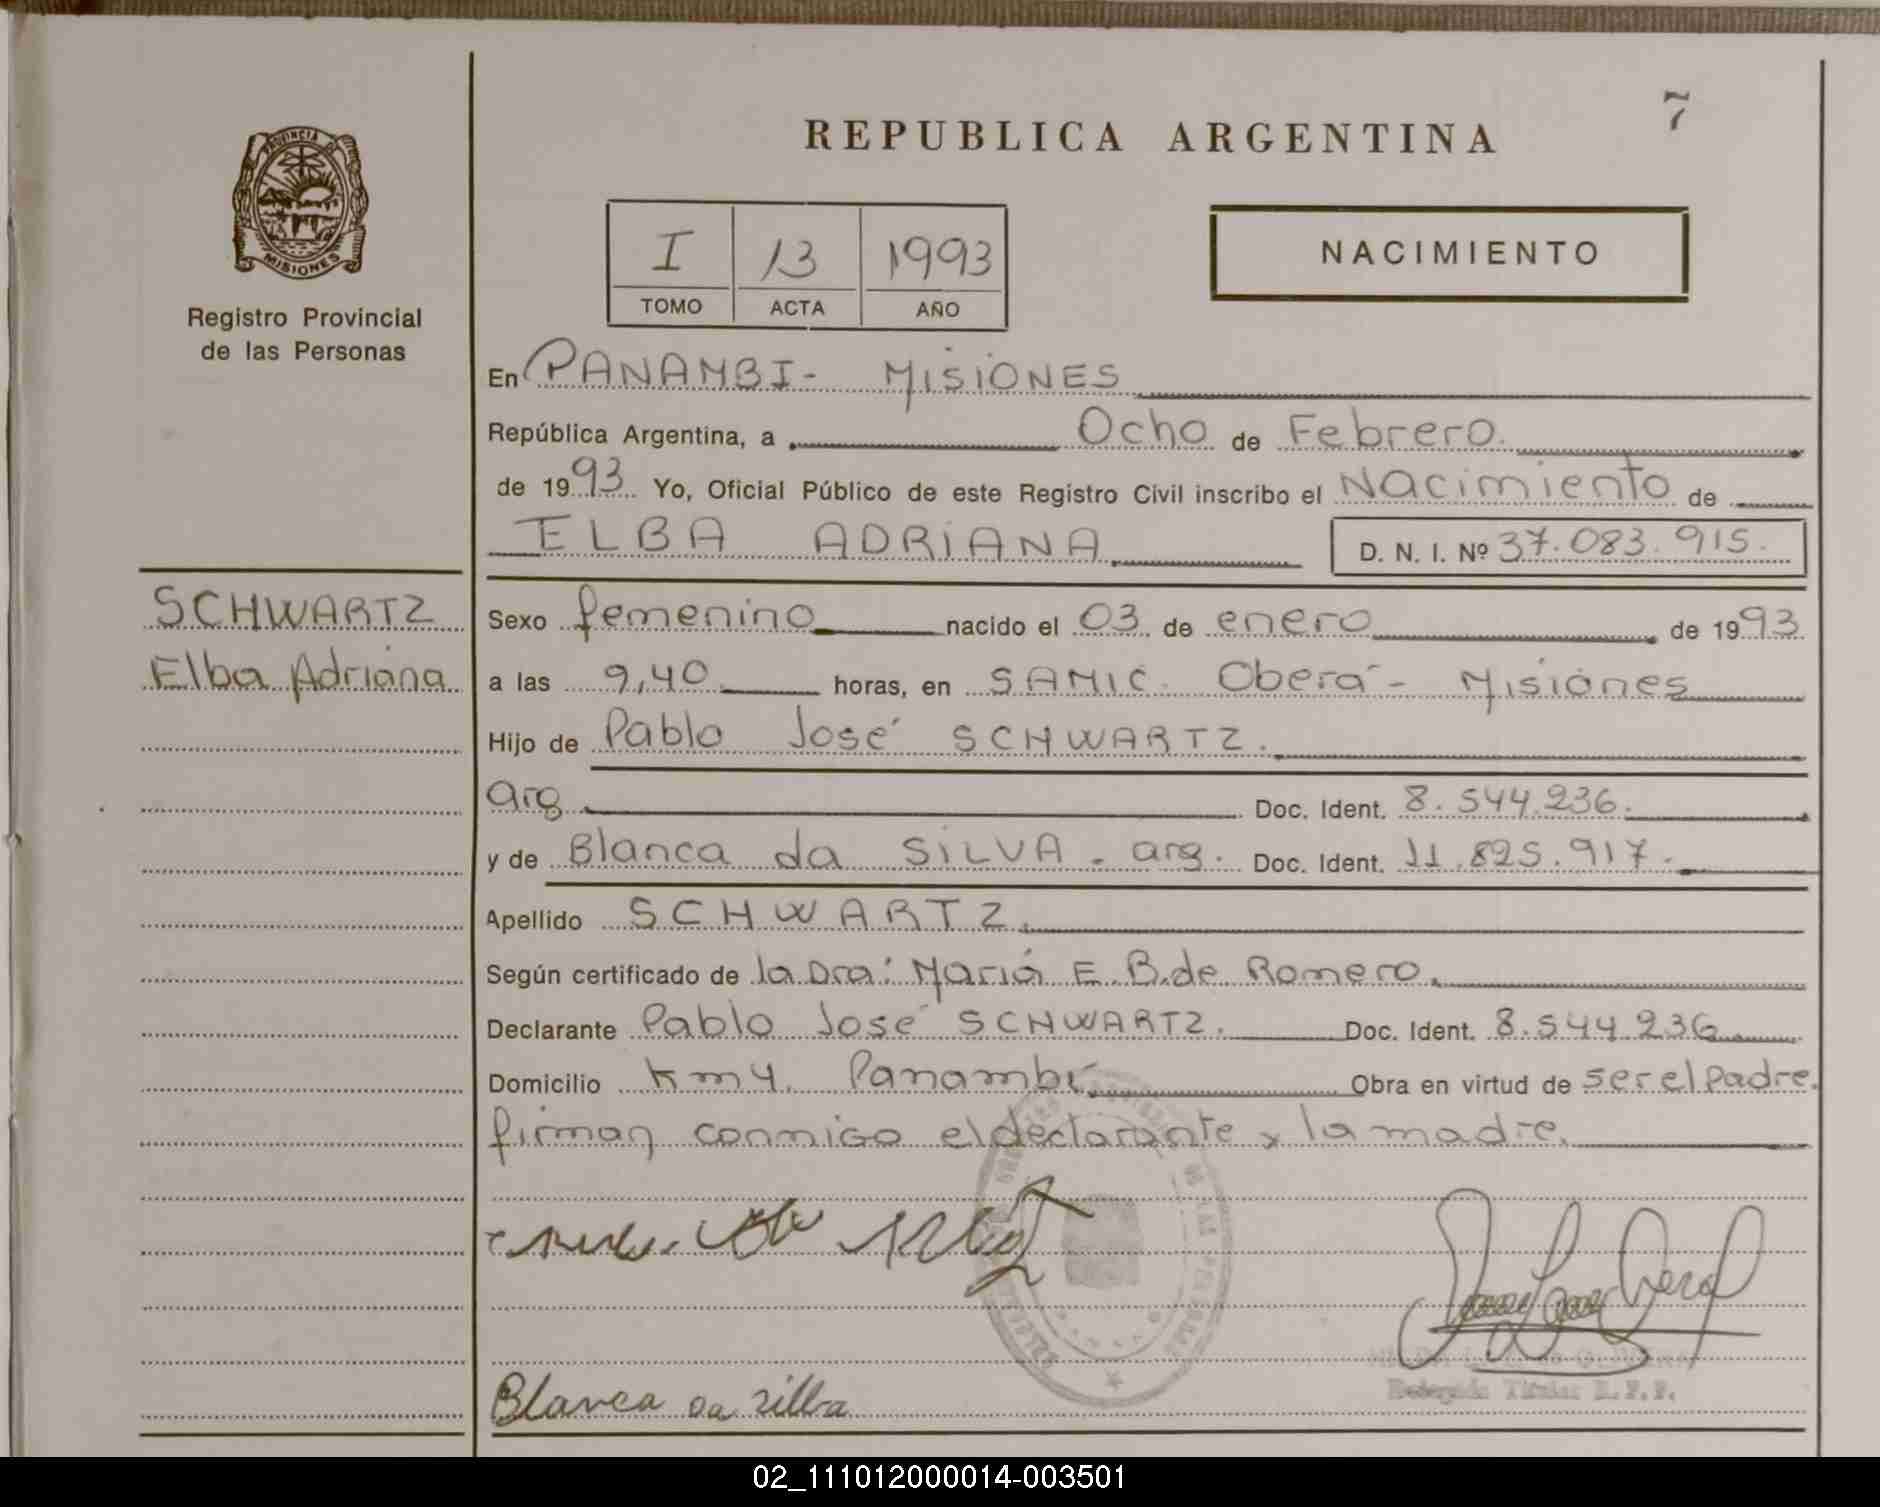 7
REPUBLICA ARGENTINA
PROVINCIA DE
MISIONES
Registro Provincial
de las Personas
I 13 1993
TOMO ACTA AÑO
NACIMIENTO
En PANAMBI- MISIONES
República Argentina, a Ocho de Febrero.
de 1993. Yo, Oficial Público de este Registro Civil inscribo el Nacimiento de
ELBA ADRIANA D. N. I. Nº 37.083.915.
SCHWARTZ
Elba Adriana
Sexo femenino nacido el 03 de enero de 1993
a las 9,40 horas, en SAMIC. Oberá- Misiones
Hijo de Pablo José SCHWARTZ.
arg Doc. Ident. 8.544.236.
y de Blanca da SILVA. arg. Doc. Ident. 11.825.917.
Apellido SCHWARTZ.
Según certificado de la Dra: María E. B. de Romero.
Declarante Pablo José SCHWARTZ. Doc. Ident. 8.544.236
Domicilio Km 4. Panambí Obra en virtud de ser el padre.
firman conmigo el declarante y la madre.
DE LAS PERSONAS
Blanca da silba
Delegado Titular R.P.P.
02_111012000014-003501